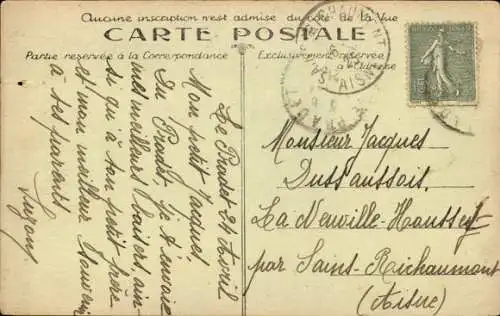 Aucune inscription n'est admise du côté de la Vue
CARTE POSTALE
Partie réservée à la Correspondance
Exclusivement réservée
à l'Adresse
Le Pradet 24 Avril
Mon petit Jacques,
Du Pradet je t'envoie
mes meilleurs baisers, ain-
si qu'à ton petit frère
et mon meilleur souvenir
à tes parents
Suzony
Monsieur Jacques
Dussaussois.
La Neuville-Housset
par Sains-Richaumont
(Aisne)
AISNE